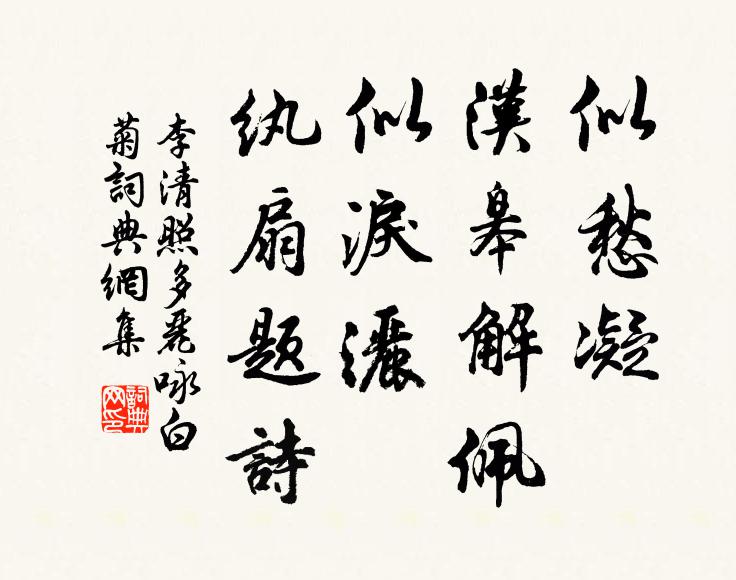 似愁凝
漢皋解佩
似淚灑
紈扇題詩
李清照多麗咏白
菊詞典網集
詞典
网印